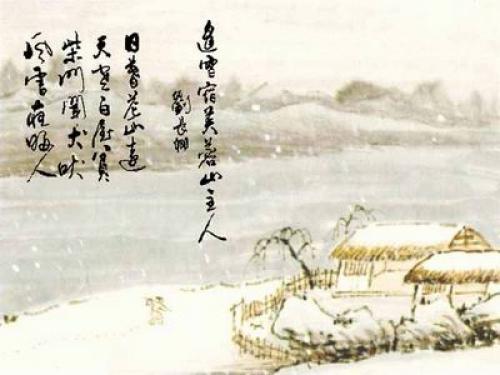 逢雪宿芙蓉山主人
劉長卿
日暮蒼山遠
天寒白屋貧
柴門聞犬吠
風雪夜歸人